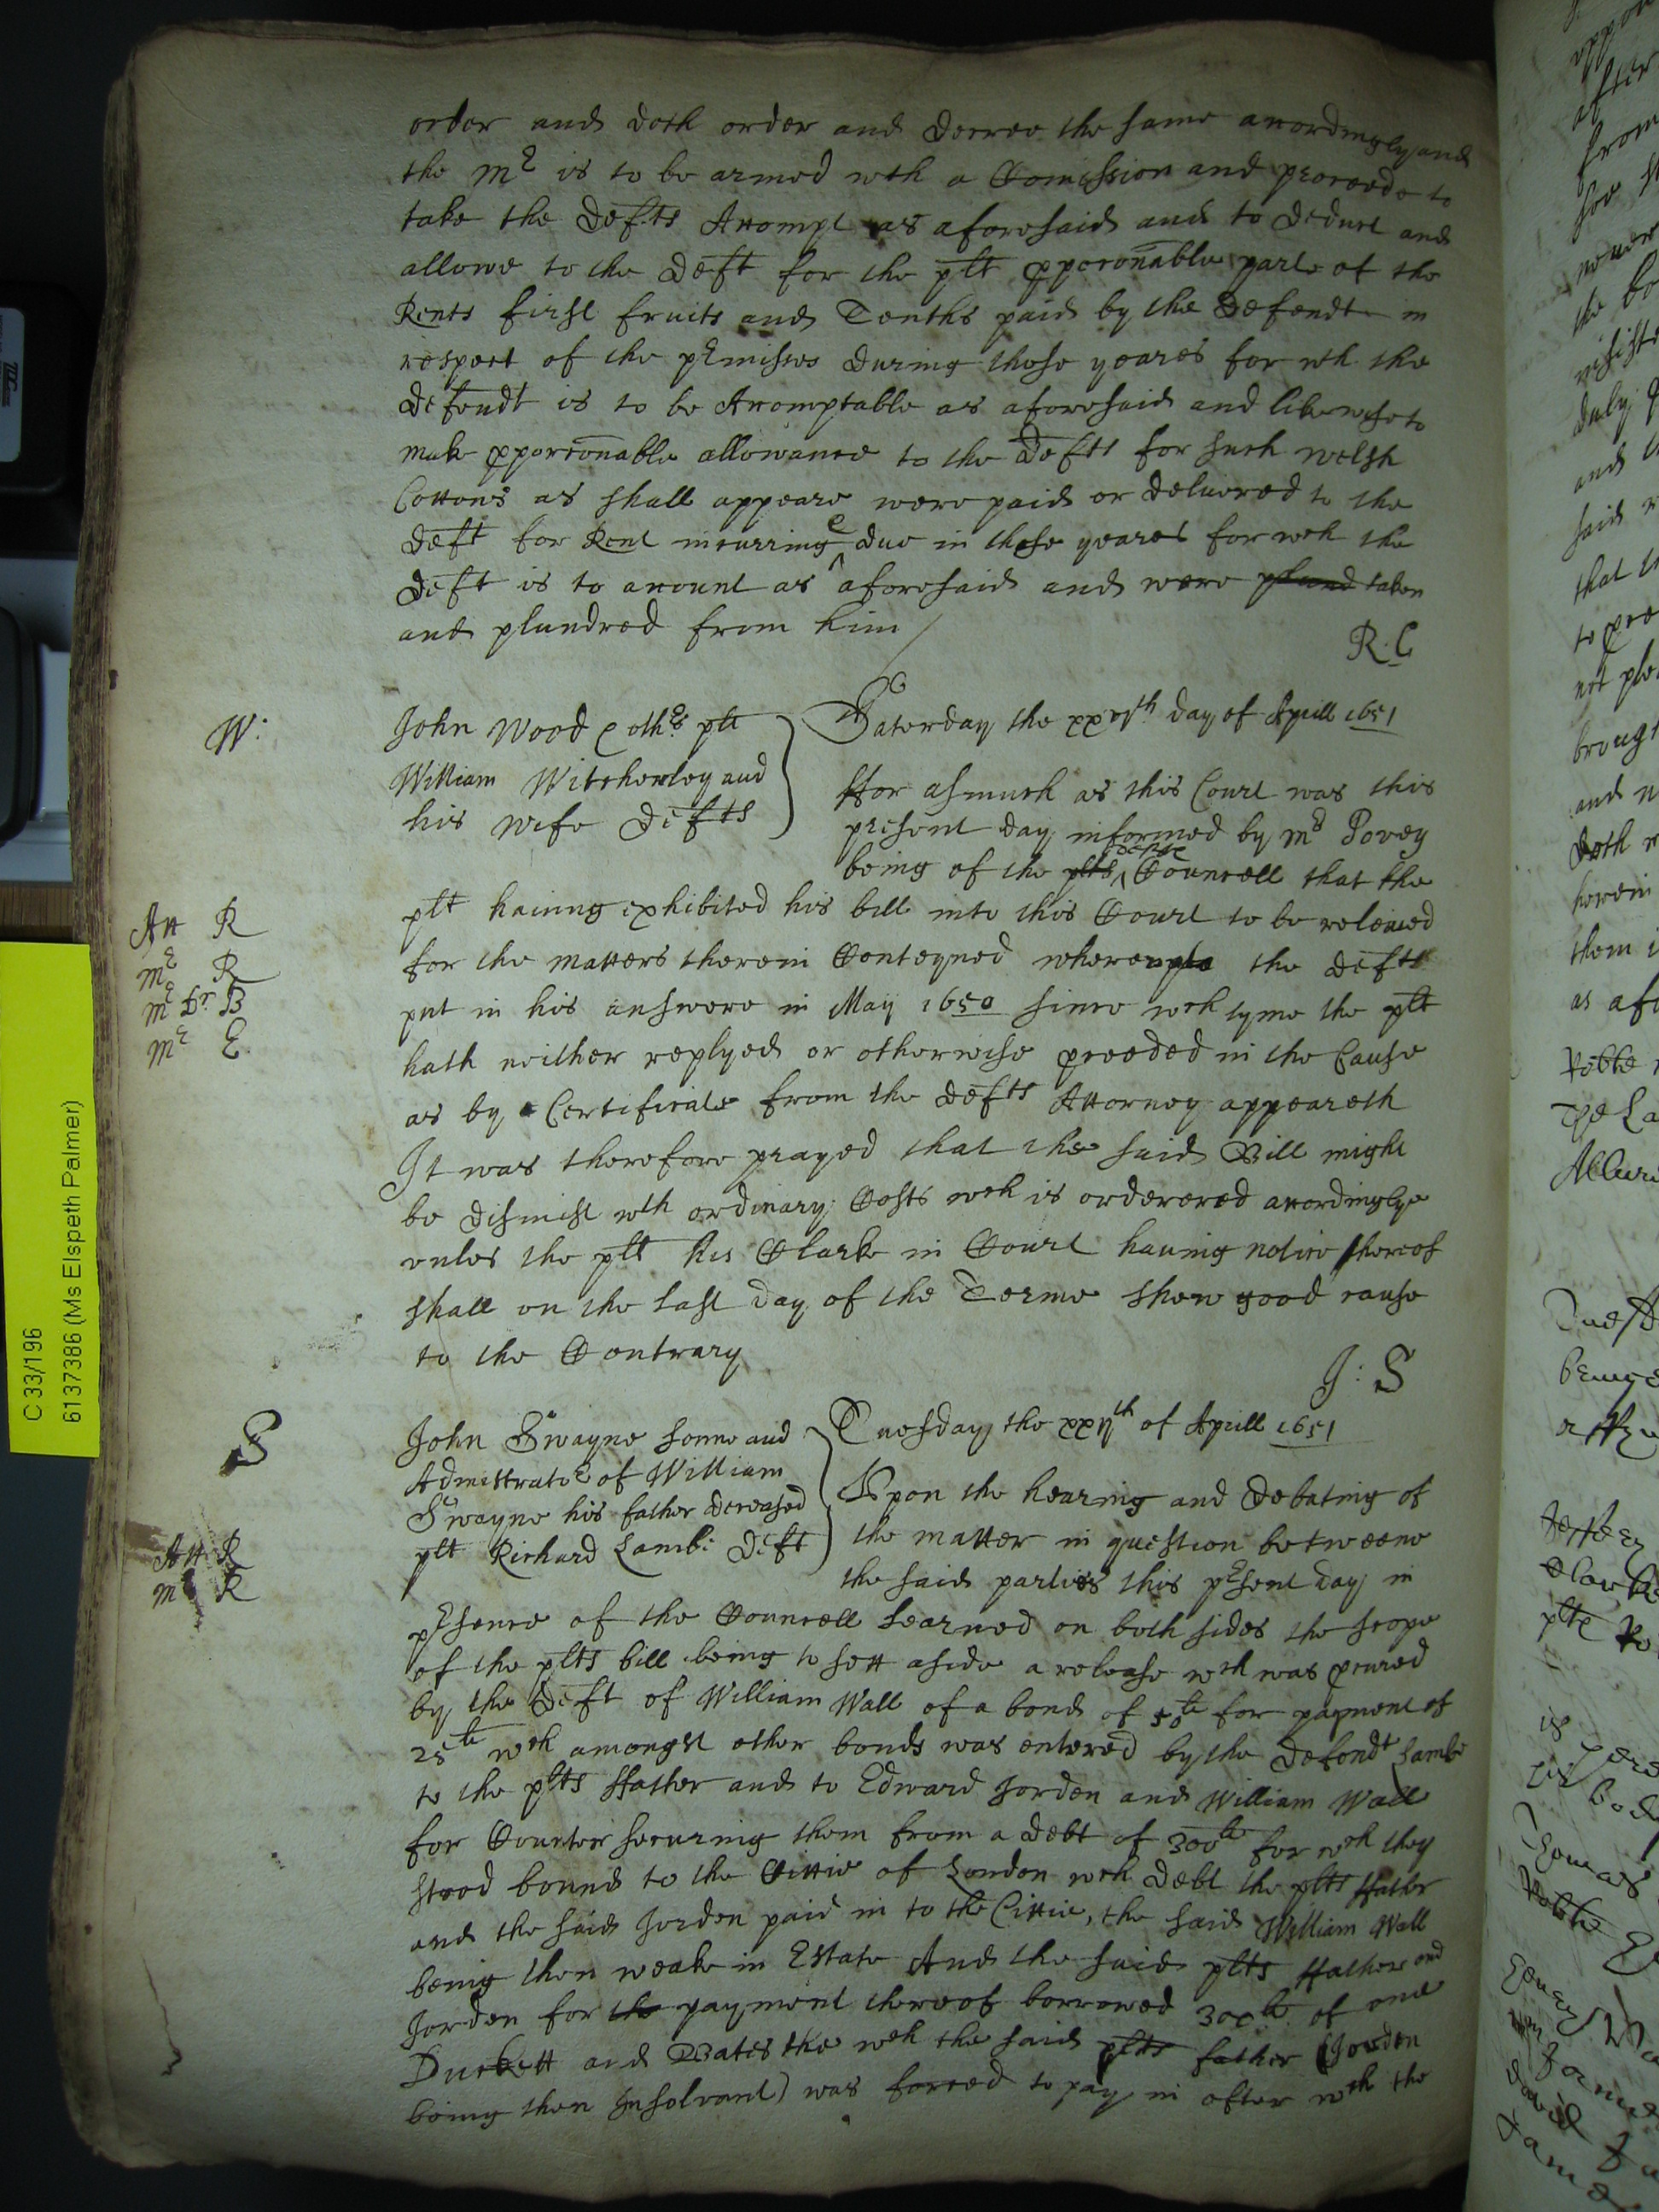 order and doth order and decree the same accordingly and
the Mr is to be armed wth a Comission and proceede to
take the Defts Accompt as aforesaid and to deduct and
allowe to the Deft for the plt pporconable parte of the
Rents first fruits and Tenths paid by the Defendt in
respect of the prmisses during those yeares for wch the
Defendt is to be Accomptable as aforesaid and likewise to
make pporconable allowance to the Defts for such welsh
Cottons as shall appeare were paid or delivered to the
Deft for Rent incurringe due in those yeares for wch the
Deft is to account as aforesaid and were plund taken
and plundred from him
R: C
W:
John Wood & othrs plt
William Witcherley and
his wife Defts
Saterday the xxvjth day of Aprill 1651
Ffor asmuch as this Court was this
present day informed by Mr Povey
being of the plts defts Councell that the
plt haiung exhibited his bill into this Court to be releived
for the matters therein Conteyned the Defts
put in his answere in May 1650 since wch tyme the plt
hath neither replyed or otherwise proceeded in the Cause
as by a Certificate from the Defts Attorney appeareth
It was therefore prayed that the said Bill might
be dismist wth ordinary Costs wch is orderered accordinglye
unles the plt his Clarke in Court having notice thereof
shall on the last day of the Terme shew good cause
to the Contrary
J: S
Att R
Mr R
Mr Dr B
Mr E
S
John Swayne sonne and
Admistrator of William
Swayne his father deceased
plt Richard Lambe Deft
Tuesday the xxijth of Aprill 1651
Upon the hearing and debating of
the matter in question betweene
the said parties this prsent day in
prsence of the Councell learned on both sides the scope
of the plts bill being to sett aside a release wch was pcured
by the Deft of William Wall of a bond of 50li for payment of
25li wch amongst other bonds was entered by the Defendt Lambe
to the plts Ffather and to Edward Jorden and William Wall
for Counter securing them from a debt of 300li for wch they
stood bound to the Cittie of London wch debt the plts Ffather
and the said Jorden paid in to the Cittie, the said William Wall
being then weake in Estate And the said plts Ffather and
Jorden for the payment thereof borrowed 300li of one
Duckett and Bates the wch the said plts father (Jorden
being then Insolvant) was forced to pay in after wch the
Att R
Mr R
C 33/196
6137386 (Ms Elspeth Palmer)